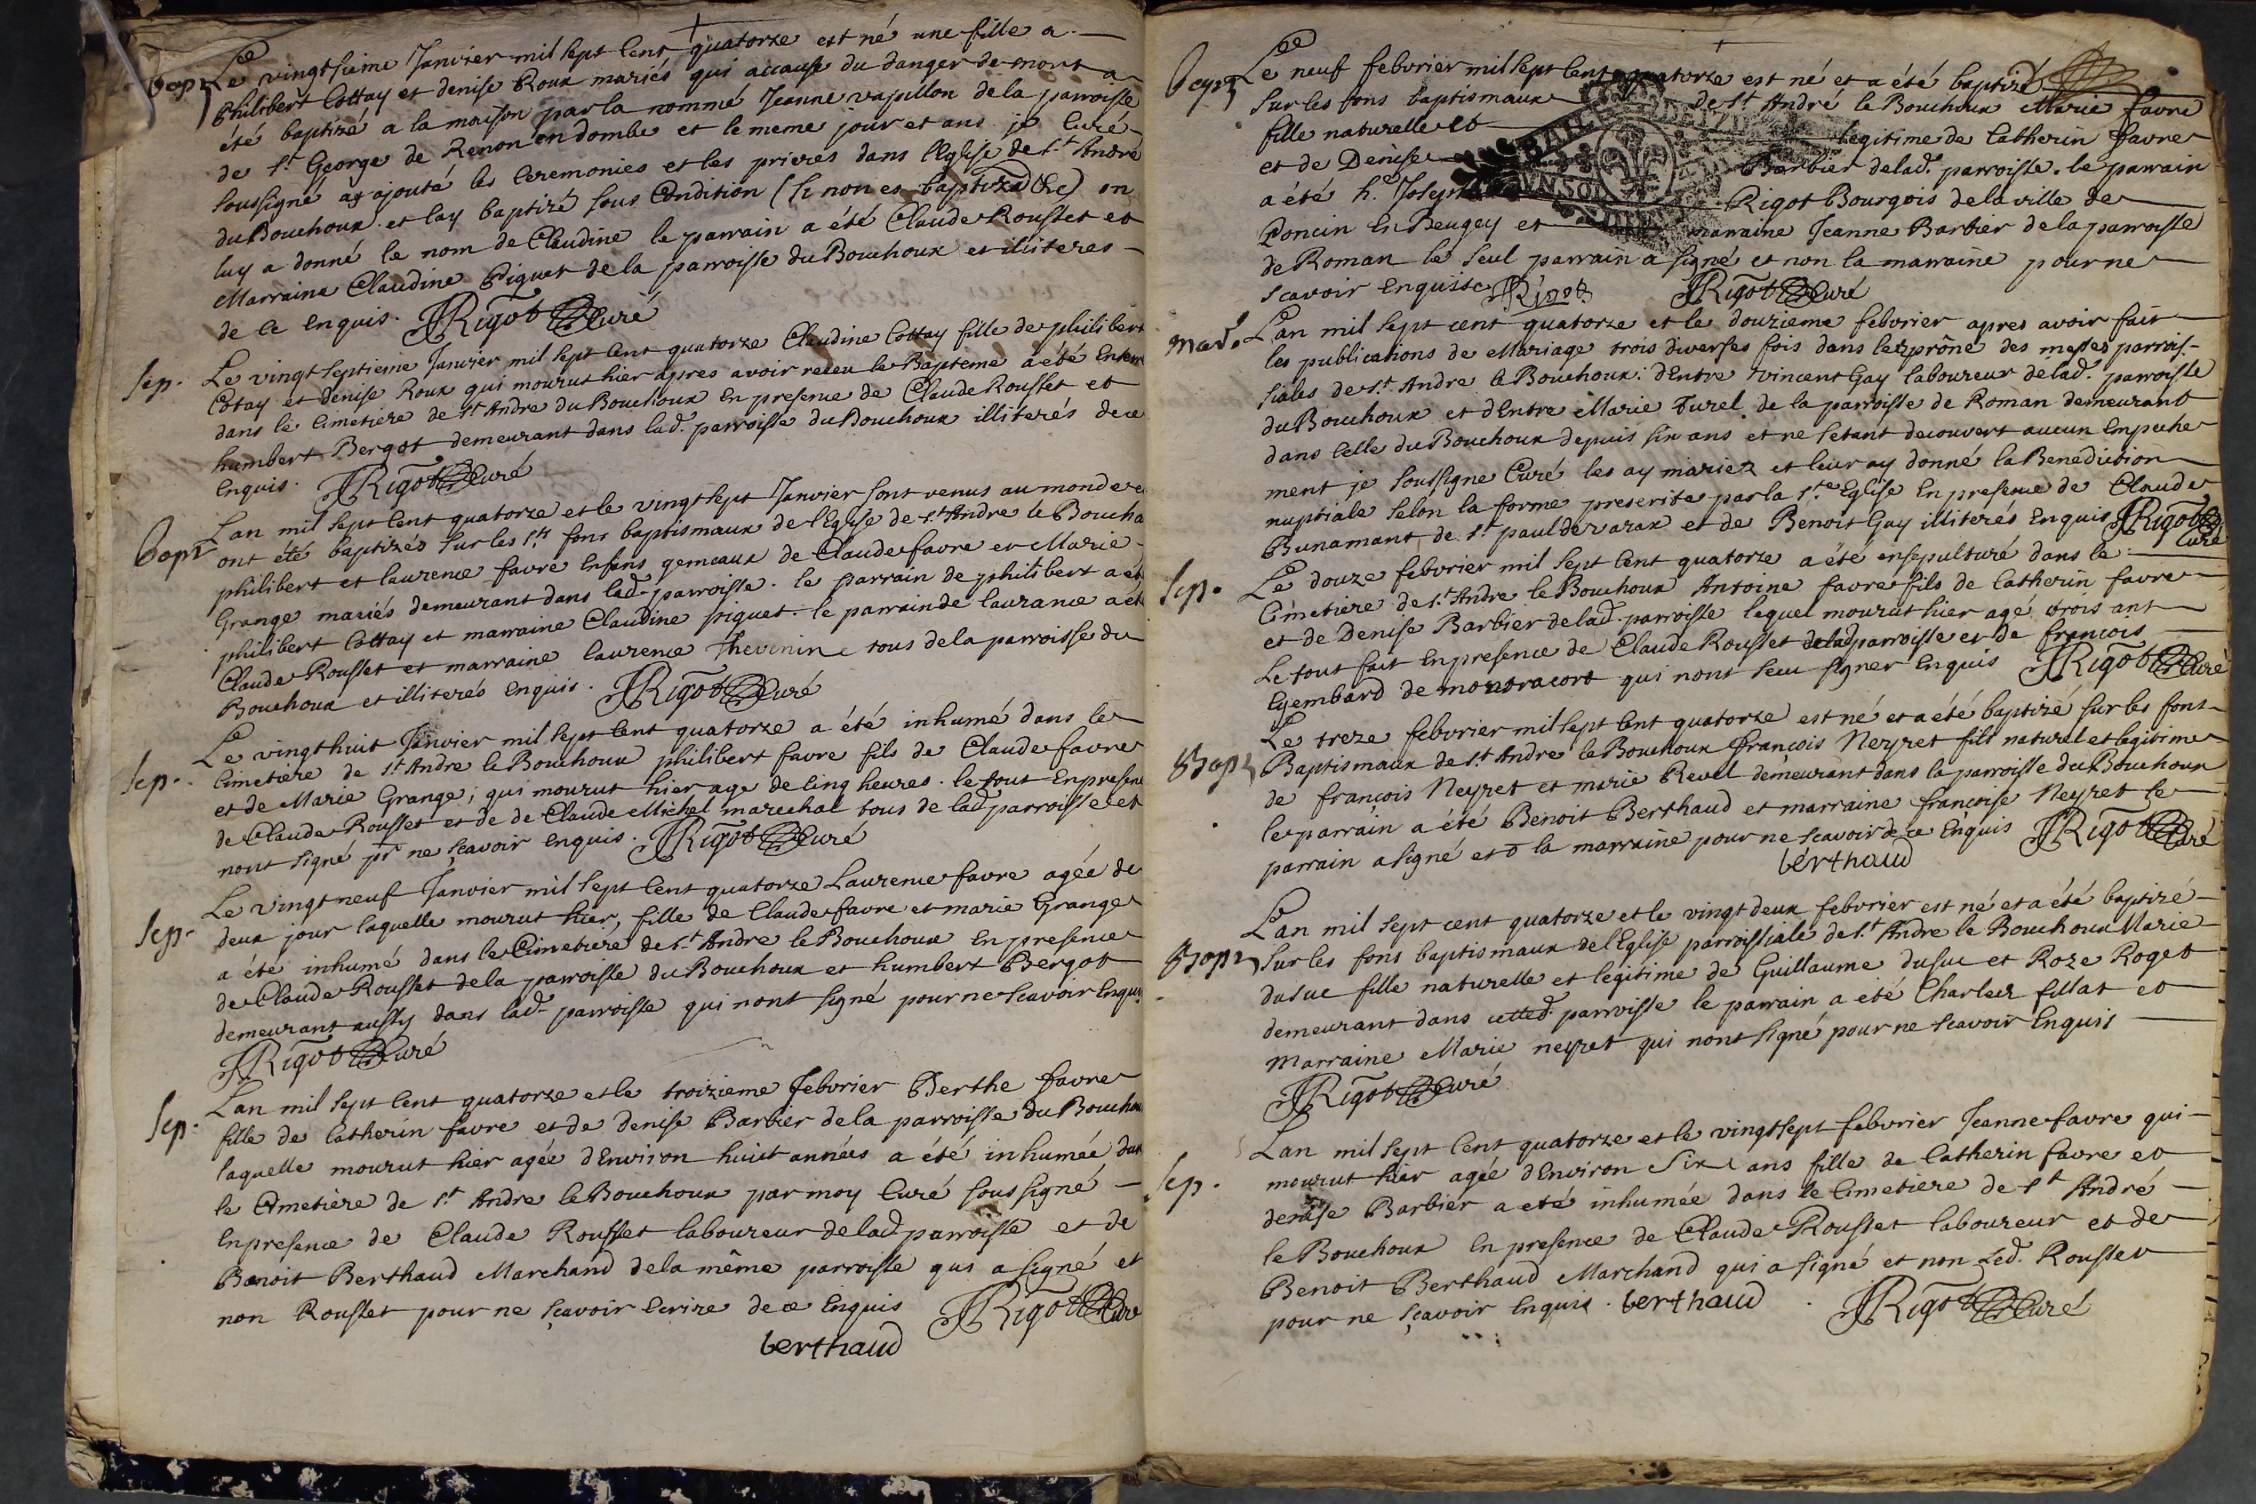 Bapt
Le vingtsieme Janvier mil sept cent quatorze est né une fille a
philibert Cottay et denise Roux mariés qui accause du danger de mort a
été baptizé a la maison par la nommé Jeanne vapillon de la parroisse
de St George de Renon en dombe et le meme jour et ans je Curé
soussigné ay ajouté les Ceremonies et les prieres dans l'Eglise de St André
du Bouchoux et lay baptizé sous Condition (si non es baptizad &c) on
luy a donné le nom de Claudine le parrain a été Claude Rousset et
Marraine Claudine Piguet de la parroisse du Bouchoux et illiteres
de ce enquis. JRigot Curé
Sep.
Le vingt septieme Janvier mil sept cent quatorze Claudine Cottay fille de philibert
Cotay et denise Roux qui mourut hier apres avoir receu le Bapteme a été Enterr
dans le Cimetiere de St Andre du Bouchoux En presence de Claude Rousset et
humbert Bergot demeurant dans lad. parroisse du Bouchoux illiterés de ce
Enquis. JRigot Curé
Bapt
Lan mil sept cent quatorze et le vingt sept Janvier sont venus au monde e
ont été baptizés sur les sts fons baptismaux de l'Eglise de St Andre le Boucho
philibert et laurence favre Enfans gemeaux de Claude favre et Marie
Grange mariés demeurant dans lad. parroisse. le parrain de philibert a ét
philibert Cottay et marraine Claudine piguet. le parrain de laurance a ét
Claude Rousset et marraine laurence Thevenin tous de la parroisse du
Bouchoux et illiterés Enquis. JRigot Curé
Sep.
Le vingt huit Janvier mil sept cent quatorze a été inhumé dans le
Cimetiere de St Andre le Bouchoux philibert favre fils de Claude favre
et de Marie Grange; qui mourut hier age de Cinq heures. le tout En presen
de Claude Rousset et de de Claude Michel marechal tous de lad parroisse et
nont signé pr ne sçavoir enquis. JRigot Curé
Sep.
Le vingt neuf Janvier mil sept Cent quatorze Laurence favre agée de
deux jour laquelle mourut hier, fille de Claude favre et marie Grange
a été inhumé dans le Cimetiere de St Andre le Bouchoux En presence
de Claude Rousset de la parroisse du Bouchoux et humbert Bergot
demeurant aussy dans lad. parroisse qui nont signé pour ne scavoir Enqui
JRigot Curé
Sep.
Lan mil sept Cent quatorze et le troizieme febvrier Berthe favre
fille de Catherin favre et de denise Barbier de la parroisse du Bouchou
laquelle mourut hier agée dEnviron huict années a été inhumée dan
le Cimetiere de St Andre le Bouchoux par moy Curé soussigné
En presence de Claude Rousset laboureur de lad parroisse et de
Benoit Berthaud Marchand de la même parroisse qui a signé et
non Rousset pour ne sçavoir Ecrire de ce Enquis JRigot Cure
berthaud
Bapt
Le neuf febvrier mil sept Cent quatorze est né et a été baptizé
sur les fons baptismaux de St André le Bouchoux Marie favre
fille naturelle et legitime de Catherin favre
et de Denise Barbier de lad. parroisse. le parrain
a été h. Joseph Rigot Bourgois de la ville de
Poncin En Beugey et marraine Jeanne Barbier de la parroisse
de Roman le seul parrain a signé et non la marraine pour ne
scavoir enquise Rigot JRigot Curé
Mar.
Lan mil sept cent quatorze et le douzieme febvrier apres avoir fait
les publications de Mariage trois diverses fois dans les prône des messes parrois-
siales de St Andre le Bouchoux: dEntre Vincent Gay laboureur de lad. parroisse
du Bouchoux et dEntre Marie Turel de la parroisse de Roman demeurant
dans Celle du Bouchoux depuis six ans et ne setant decouvert aucun Empeche
ment je soussigne Curé les ay mariez et leur ay donné la Benediction
nuptiale selon la forme prescrite par la Ste Eglise En presence de Claude
Bunamant de St paul de varax et de Benoit Gay illiterés Enquis JRigot
Curé
Sep.
Le douze febvrier mil sept cent quatorze a été ensepulturé dans le
Cimetiere de St Andre le Bouchoux Antoine favre fils de Catherin favre
et de Denise Barbier de lad. parroisse lequel mourut hier agé trois ant
Le tout fait En presence de Claude Rousset de lad parroisse et de françois
Gyembard de montracort qui nont sceu signer Enquis JRigot Curé
Bapt
Le treze febvrier mil sept cent quatorze est né et a été baptizé sur les fons
Baptismaux de St Andre le Bouchoux françois Neyret fils naturel et legitime
de françois Neyret et marie Revel demeurant dans la parroisse du Bouchoux
le parrain a été Benoit Berthaud et marraine françoise Neyret le
parrain a signé et ō la marraine pour ne scavoir de ce Enquis JRigot Curé
berthaud
Bapt
Lan mil sept cent quatorze et le vingt deux febvrier est né et a été baptizé
sur les fons baptismaux de l'Eglise parroissiale de St Andre le Bouchoux Marie
dusuc fille naturelle et legitime de Guillaume dusuc et Roze Roget
demeurant dans cetted. parroisse le parrain a eté Charlez fillat et
Marraine Marie neyret qui nont signé pour ne scavoir Enquis
JRigot Curé
Sep.
Lan mil sept Cent quatorze et le vingt sept febvrier Jeanne favre qui
mourut hier agée dEnviron Six ans fille de Catherin favre et
denise Barbier a eté inhumée dans le Cimetiere de St André
le Bouchoux En presence de Claude Rousset laboureur et de
Benoit Berthaud Marchand qui a signé et non led. Rousset
pour ne sçavoir Enquis. berthaud. JRigot Curé